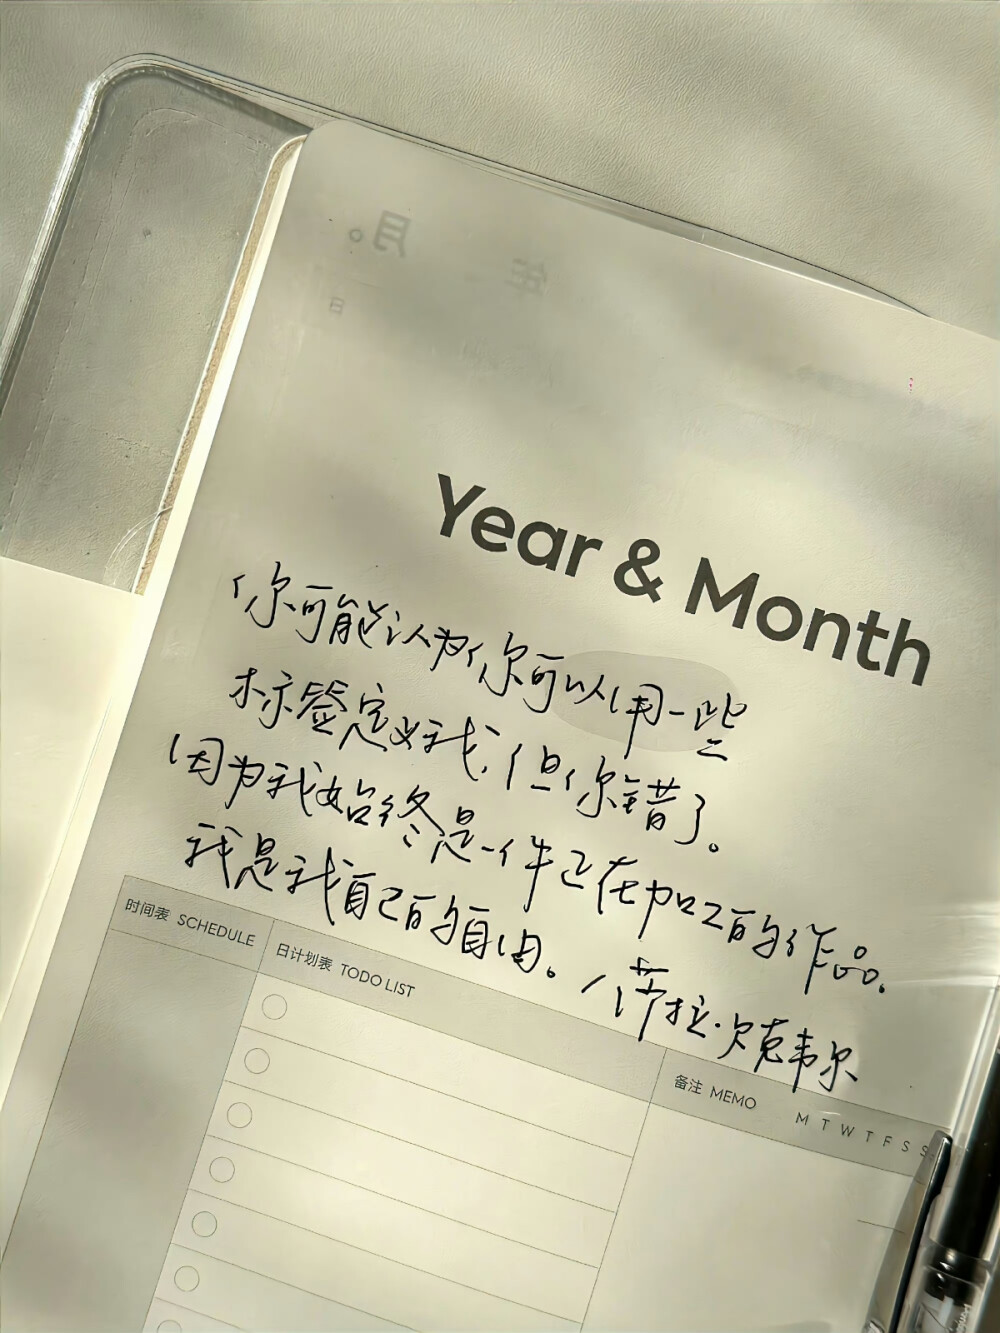 月。
年
日
Year & Month
你可能认为你可以用一些
标签定义我，但你错了。
因为我始终是一件正在加工的作品。
我是我自己的自由。/萨拉·贝克韦尔
时间表 SCHEDULE
日计划表 TODO LIST
备注 MEMO
M T W T F S S